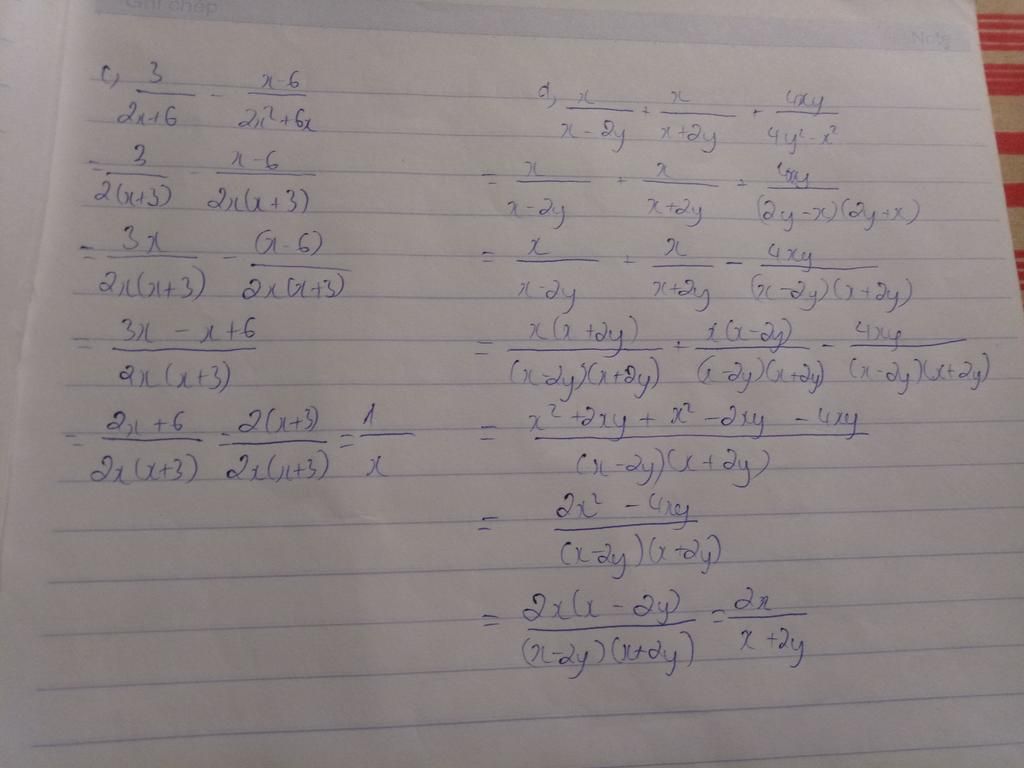 Ghi chép
Note
c, 3/(2x+6) - (x-6)/(2x²+6x)
= 3/(2(x+3)) - (x-6)/(2x(x+3))
= 3x/(2x(x+3)) - (x-6)/(2x(x+3))
= (3x - x+6)/(2x(x+3))
= (2x+6)/(2x(x+3)) = 2(x+3)/(2x(x+3)) = 1/x
d, x/(x-2y) + x/(x+2y) + 4xy/(4y²-x²)
= x/(x-2y) + x/(x+2y) + 4xy/((2y-x)(2y+x))
= x/(x-2y) + x/(x+2y) - 4xy/((x-2y)(x+2y))
= x(x+2y)/((x-2y)(x+2y)) + x(x-2y)/((x-2y)(x+2y)) - 4xy/((x-2y)(x+2y))
= (x²+2xy + x²-2xy - 4xy)/((x-2y)(x+2y))
= (2x² - 4xy)/((x-2y)(x+2y))
= 2x(x-2y)/((x-2y)(x+2y)) = 2x/(x+2y)